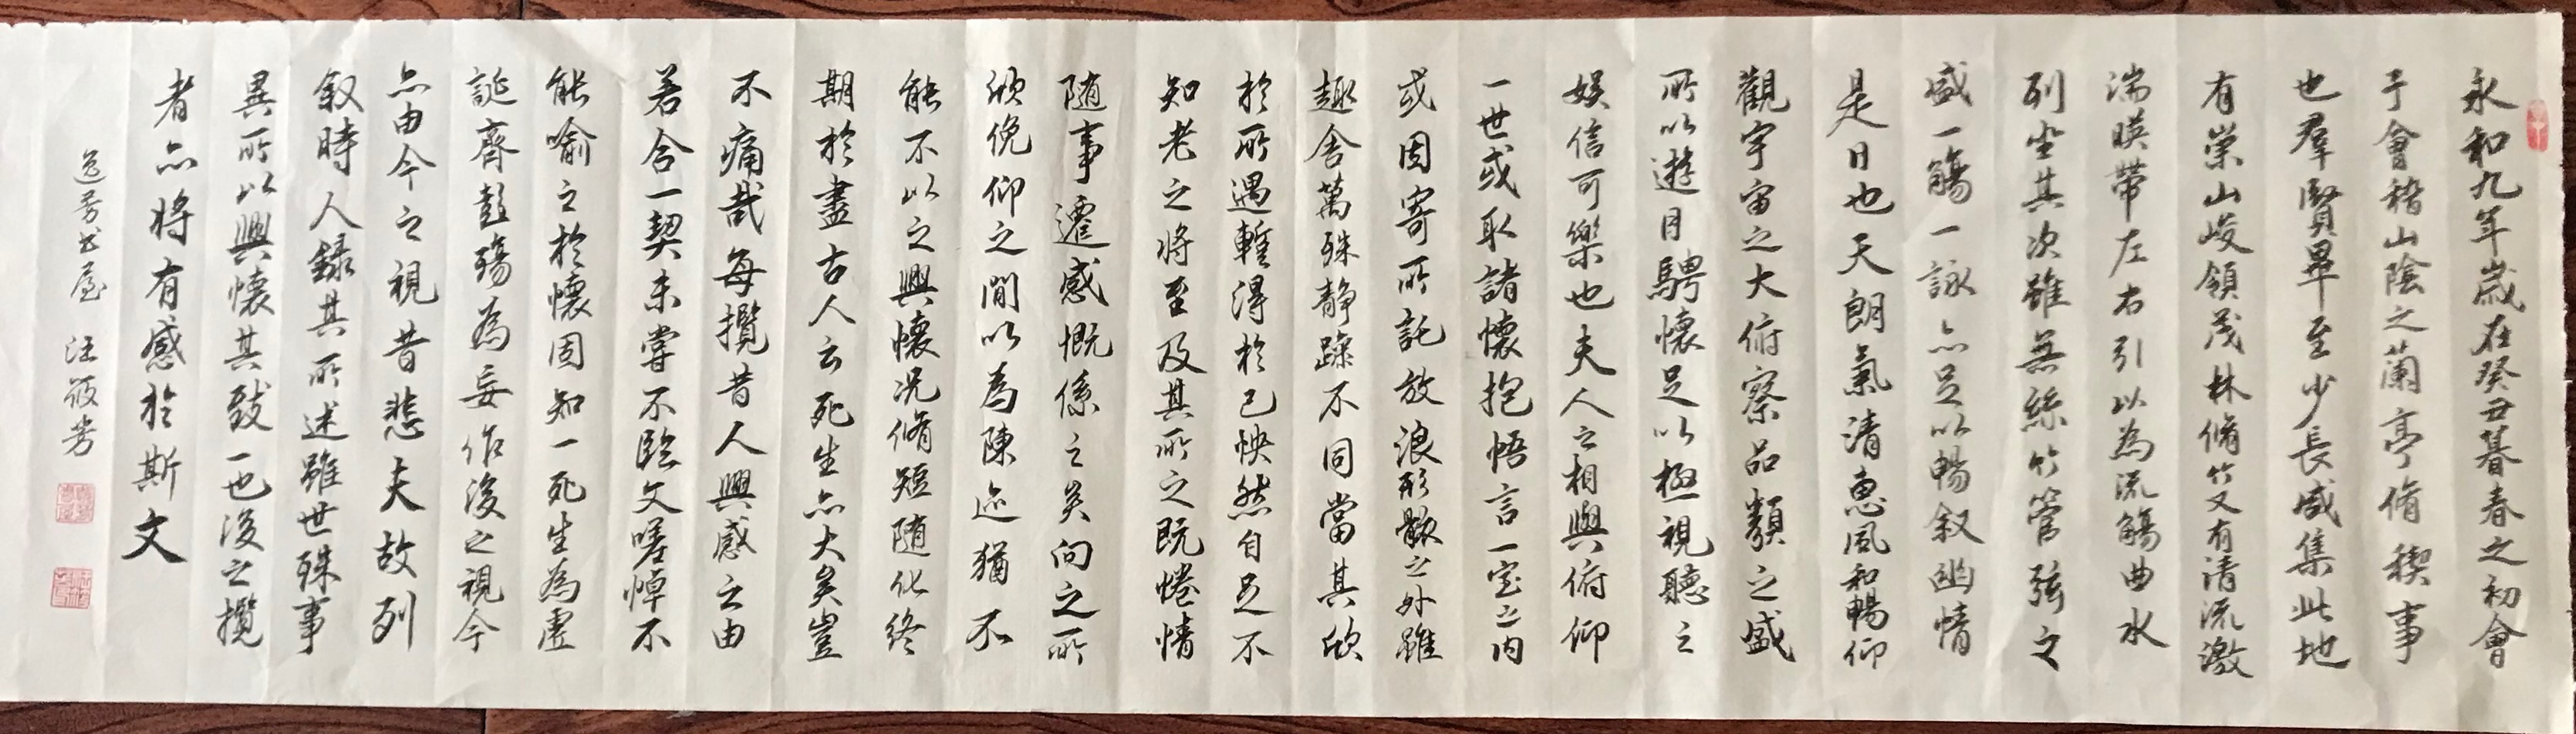 永和九年歲在癸丑暮春之初會
于會稽山陰之蘭亭脩稧事
也羣賢畢至少長咸集此地
有崇山峻領茂林脩竹又有清流激
湍暎帶左右引以為流觴曲水
列坐其次雖無絲竹管弦之
盛一觴一詠亦足以暢叙幽情
是日也天朗氣清惠風和暢仰
觀宇宙之大俯察品類之盛
所以遊目騁懷足以極視聽之
娛信可樂也夫人之相與俯仰
一世或取諸懷抱悟言一室之內
或因寄所託放浪形骸之外雖
趣舍萬殊靜躁不同當其欣
於所遇暫得於己怏然自足不
知老之將至及其所之既惓情
隨事遷感慨係之矣向之所
欣俛仰之間以為陳迹猶不
能不以之興懷況脩短隨化終
期於盡古人云死生亦大矣豈
不痛哉每攬昔人興感之由
若合一契未嘗不臨文嗟悼不
能喻之於懷固知一死生為虛
誕齊彭殤為妄作後之視今
亦由今之視昔悲夫故列
叙時人錄其所述雖世殊事
異所以興懷其致一也後之攬
者亦將有感於斯文
逸芳书屋 汪筱芳